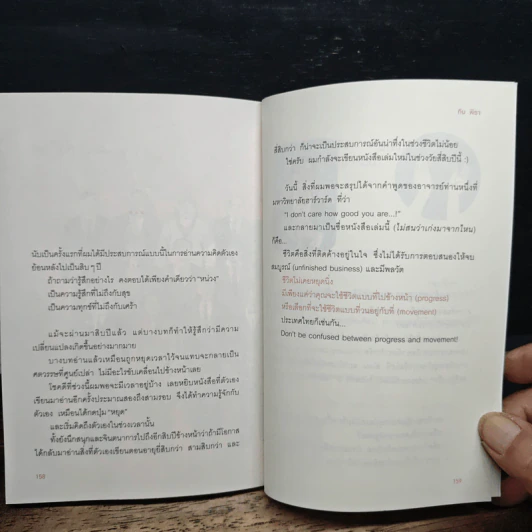 นับเป็นครั้งแรกที่ผมได้มีประสบการณ์แบบนี้ในการอ่านความคิดตัวเอง
ย้อนหลังไปเป็นสิบ ๆ ปี
ถ้าถามว่ารู้สึกอย่างไร คงตอบได้เพียงคำเดียวว่า "หน่วง"
เป็นความรู้สึกที่ไม่ถึงกับสุข
เป็นความทุกข์ที่ไม่ถึงกับเศร้า
แม้จะผ่านมาสิบปีแล้ว แต่บางบทก็ทำให้รู้สึกว่ามีความ
เปลี่ยนแปลงเกิดขึ้นอย่างมากมาย
บางบทอ่านแล้วเหมือนถูกหยุดเวลาไว้จนแทบจะกลายเป็น
ศตวรรษที่ศูนย์เปล่า ไม่มีอะไรขับเคลื่อนไปข้างหน้าเลย
โชคดีที่ช่วงนี้ผมพอจะมีเวลาอยู่บ้าง เลยหยิบหนังสือที่ตัวเอง
เขียนมาอ่านอีกครั้งประมาณสองถึงสามรอบ จึงได้ทำความรู้จักกับ
ตัวเอง เหมือนได้กดปุ่ม "หยุด"
และเริ่มคิดถึงตัวเองในช่วงเวลานั้น
ทั้งยังนึกสนุกและจินตนาการไปถึงอีกสิบปีข้างหน้าว่าถ้ามีโอกาส
ได้กลับมาอ่านสิ่งที่ตัวเองเขียนตอนอายุยี่สิบกว่า สามสิบกว่า และ
สี่สิบกว่า ก็น่าจะเป็นประสบการณ์อันน่าทึ่งในช่วงชีวิตไม่น้อย
ใช่ครับ ผมกำลังจะเขียนหนังสือเล่มใหม่ในช่วงวัยสี่สิบปีนี้ :)
วันนี้ สิ่งที่ผมพอจะสรุปได้จากคำพูดของอาจารย์ท่านหนึ่งที่
มหาวิทยาลัยฮาร์วาร์ด ที่ว่า
"I don't care how good you are...!"
และกลายมาเป็นชื่อหนังสือเล่มนี้ (ไม่สนว่าเก่งมาจากไหน)
ก็คือ...
ชีวิตคือสิ่งที่ติดค้างอยู่ในใจ ซึ่งไม่ได้รับการตอบสนองให้จบ
สมบูรณ์ (unfinished business) และมีพลวัต
ชีวิตไม่เคยหยุดนิ่ง
มีเพียงแค่ว่าคุณจะใช้ชีวิตแบบที่ไปข้างหน้า (progress)
หรือเลือกที่จะใช้ชีวิตแบบที่วนอยู่กับที่ (movement)
ประเทศไทยก็เช่นกัน...
Don't be confused between progress and movement!